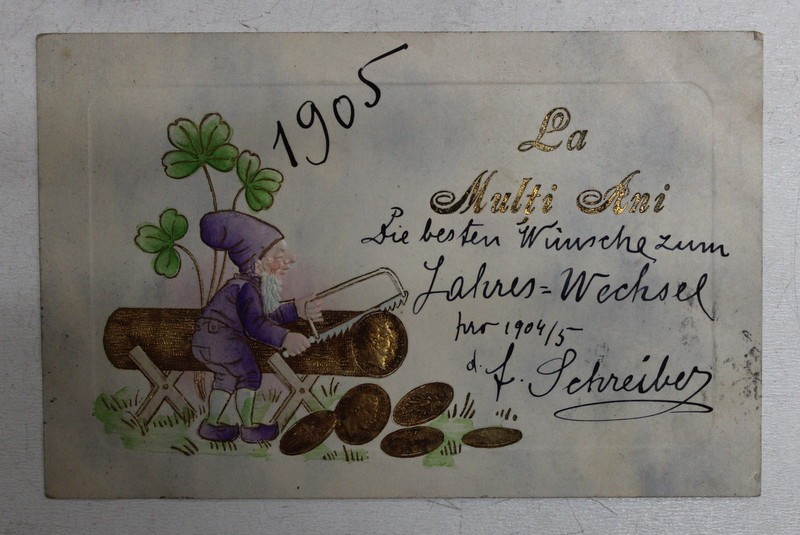 1905
La
Mulţi Ani
Die besten Wünsche zum
Jahres=Wechsel
pro 1904/5
d. f. Schreiber